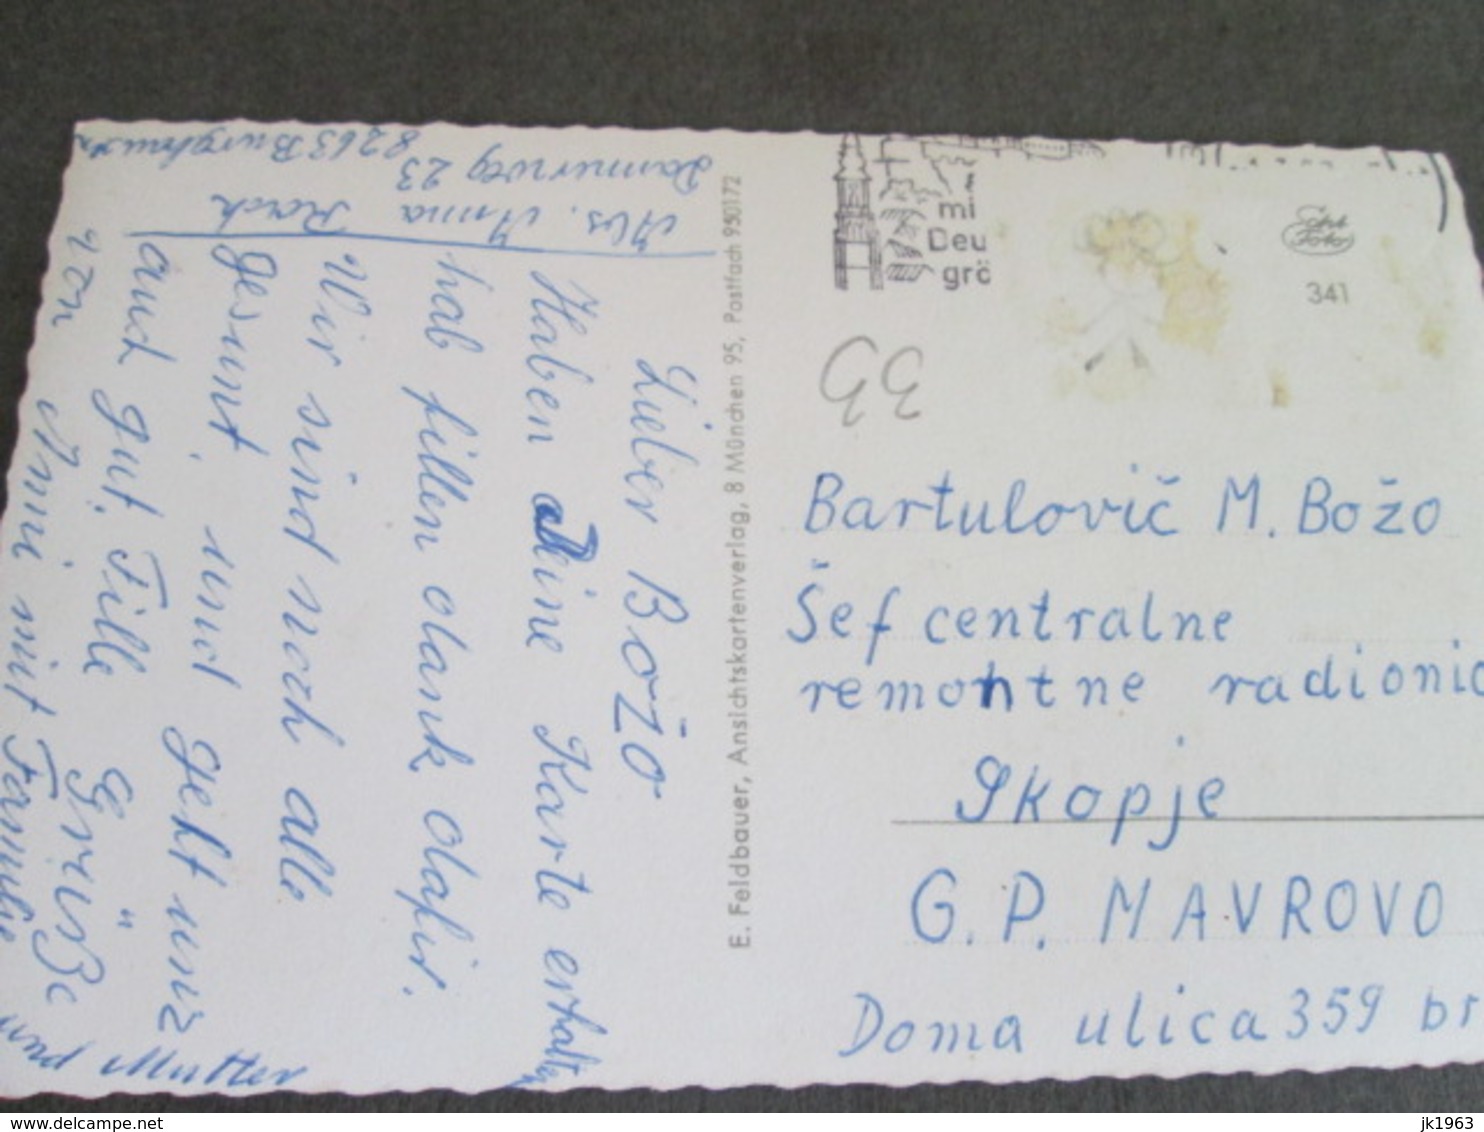 Abs. Anna Rack
Dammerweg 23
8263 Burghausen
Lieber Božo
Haben Deine Karte erhalten
hab fillen dank dafir.
Wir sind noch alle
gesunt, und gekt uns
auch gut. Fille Grüße
von Anni mit Familie
und Mutter
E. Feldbauer, Ansichtskartenverlag, 8 München 95, Postfach 950172
mi
Deu
grö
341
33
Bartulovič M. Božo
Šef centralne
remontne radionic
Skopje
G.P. MAVROVO
Doma ulica 359 br
delcampe.net
jk1963